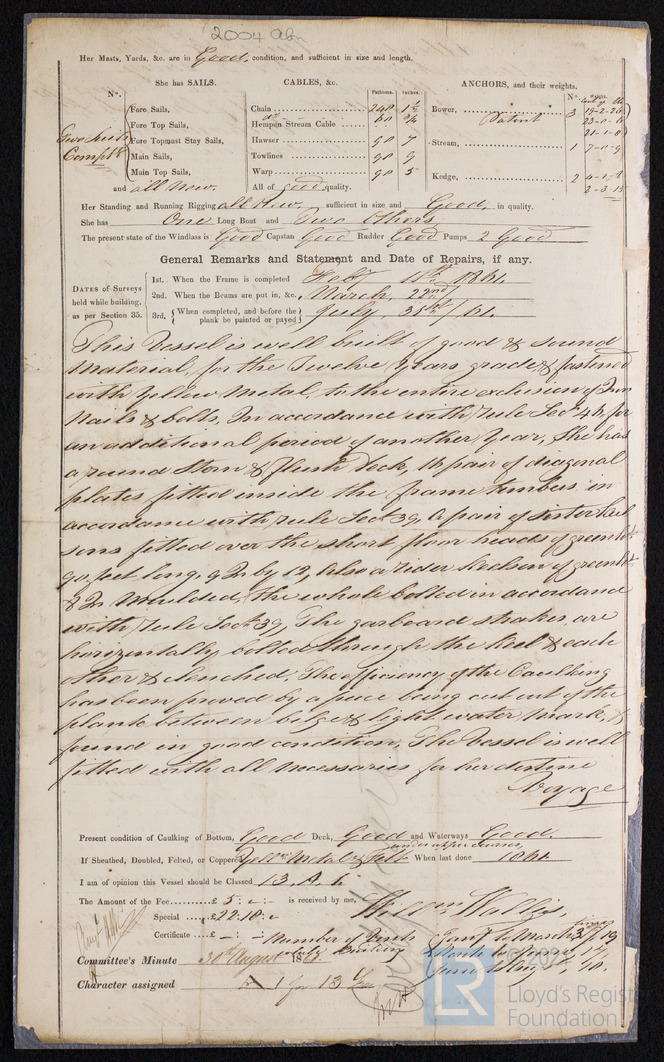 2004 abn
Her Masts, Yards, &c. are in Good, condition, and sufficient in size and length.
She has SAILS. CABLES, &c. ANCHORS, and their weights.
No. Fathoms. Inches. No.
Fore Sails, Chain 240 1½ Bower, 3
Fore Top Sails, Hempen Stream Cable Patent
Two Suits Fore Topmast Stay Sails, Hawser 90 7 Stream, 1
Compte Main Sails, Towlines 90
Main Top Sails, Warp 90 5 Kedge, 2
and all new. All of good quality.
Her Standing and Running Rigging all New. sufficient in size and Good, in quality.
She has One Long Boat and Two Others
The present state of the Windlass is Good Capstan Good Rudder Good Pumps 2 Good
General Remarks and Statement and Date of Repairs, if any.
DATES of Surveys held while building, as per Section 35.
1st. When the Frame is completed Feby 1861.
2nd. When the Beams are put in, &c. March, 22nd
3rd, {When completed, and before the plank be painted or payed} July, /61.
This Vessel is well built of good & sound
material, for the Twelve Years grade & fastened
with Yellow Metal, to the entire exclusion of Iron
Nails & bolts, In accordance with rule Sect. 44, for
an additional period of another Year, She has
a round Stern & flush Deck, 16 pair of diagonal
plates fitted inside the frame timbers in
accordance with rule Sect 39, a pair of sister keel
sons fitted over the short floor heads of greenht
90 feet long, 9 In by 12, also a rider Keelson of greenht
8 In Moulded, the whole bolted in accordance
with rule Sect 39, The garboard strakes, are
horizontally bolted through the keel & each
other & clenched. The efficiency of the Caulking
has been proved by a piece being cut out of the
plank between bilge & light water mark, &
found in good condition, The Vessel is well
fitted with all necessaries for her destine
Voyage
Present condition of Caulking of Bottom, Good Deck, Good and Waterways Good.
If Sheathed, Doubled, Felted, or Coppered Yellw Metal & Felt When last done 1861
I am of opinion this Vessel should be Classed 13. A. 1.
The Amount of the Fee £5: " : – is received by me,
Special £22.10: " Willm Wallis,
Certificate £ – : – Number of Visits
Committee's Minute 30th August 1861
Character assigned A 1 for 13 Yrs
© 2021
LR
Lloyd's Register
Foundation